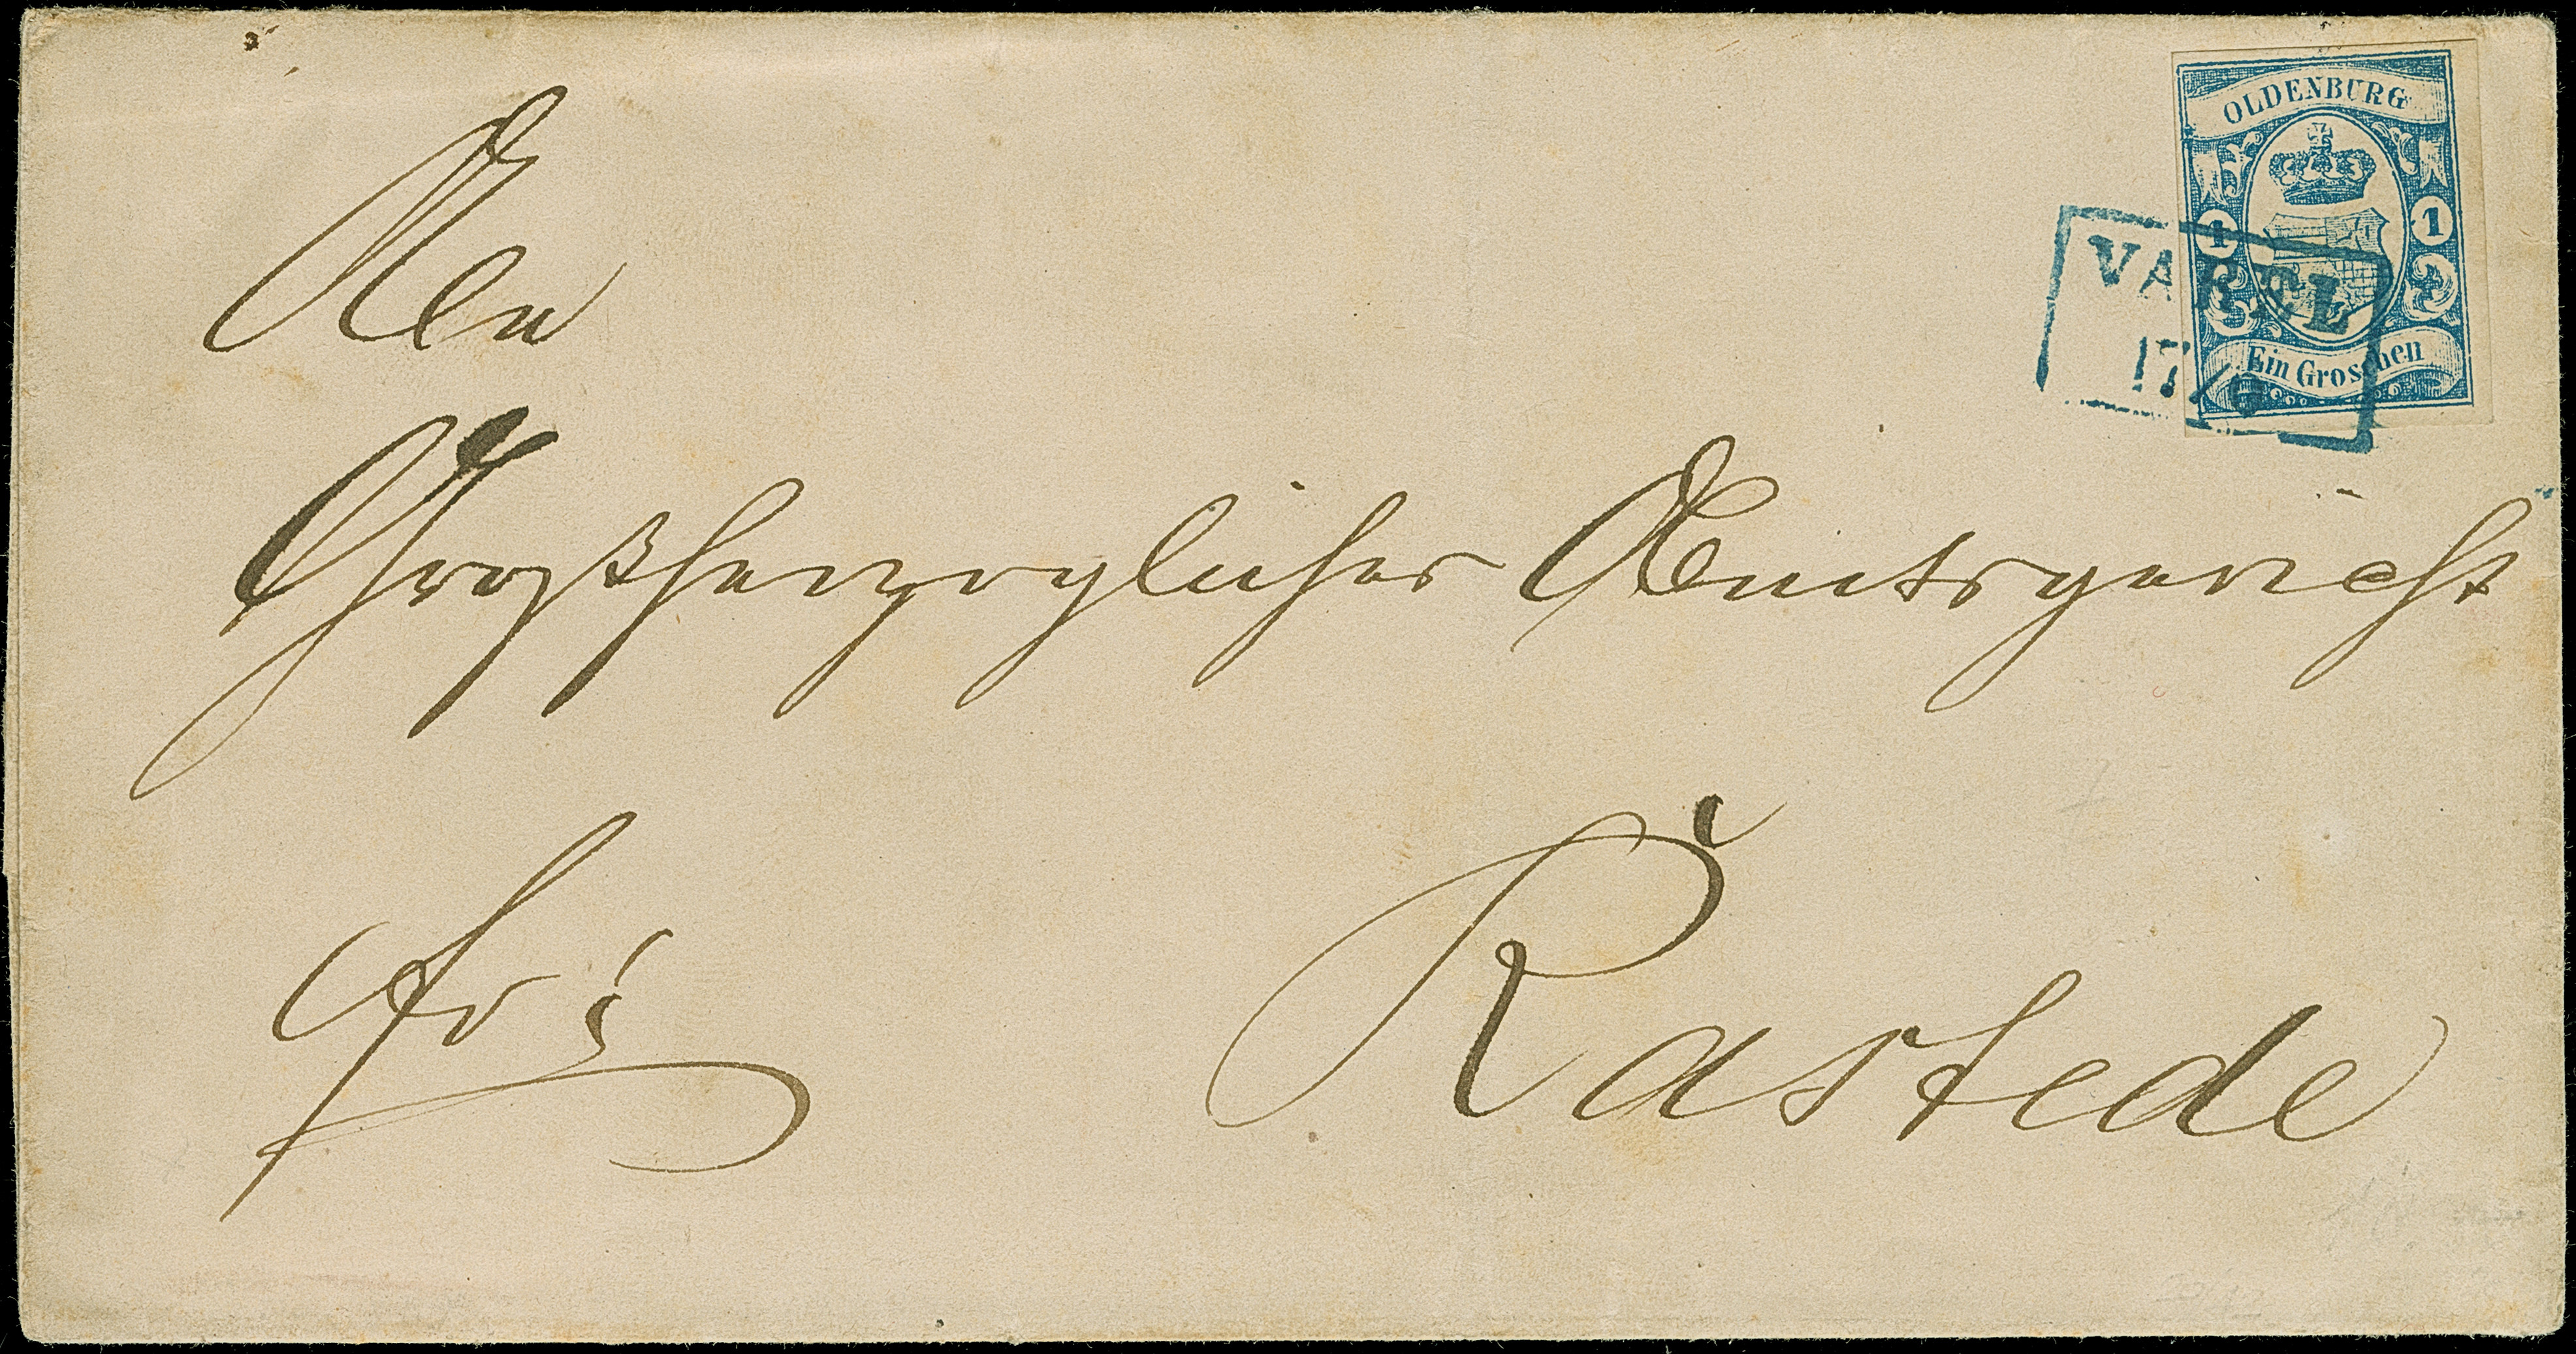 OLDENBURG
1 1
VAREL
17/9
Ein Groschen
An
Großherzogliches Amtsgericht
fr.
Rastede